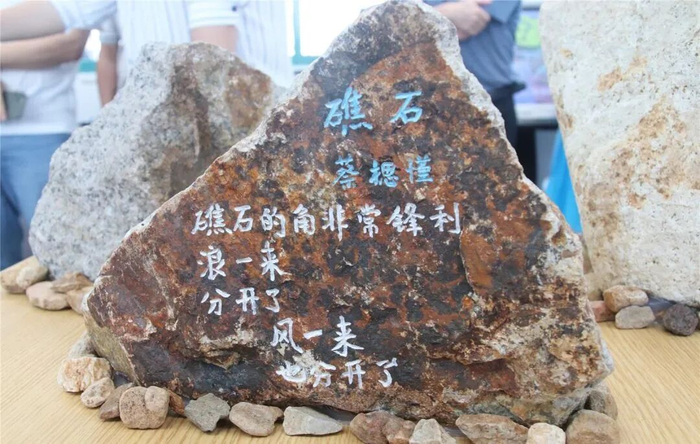 礁石
蔡德谨
礁石的角非常锋利
浪一来
分开了
风一来
也分开了